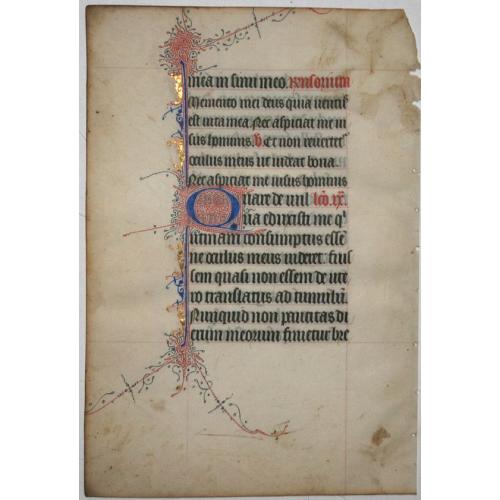 mea in sinu meo. Responsorium
Memento mei deus quia ventus
est vita mea. Nec aspiciat me vi
sus hominis. V. Et non revertetur
oculus meus ut videat bona.
Nec aspiciat me visus hominis
Quare de vul lco. ix.
va eduxisti me qui
utinam consumptus esse
ne oculus meus videret. Fuis
sem quasi non essem de ute
ro translatus ad tumulum.
Nunquid non paucitas di
erum meorum finietur bre